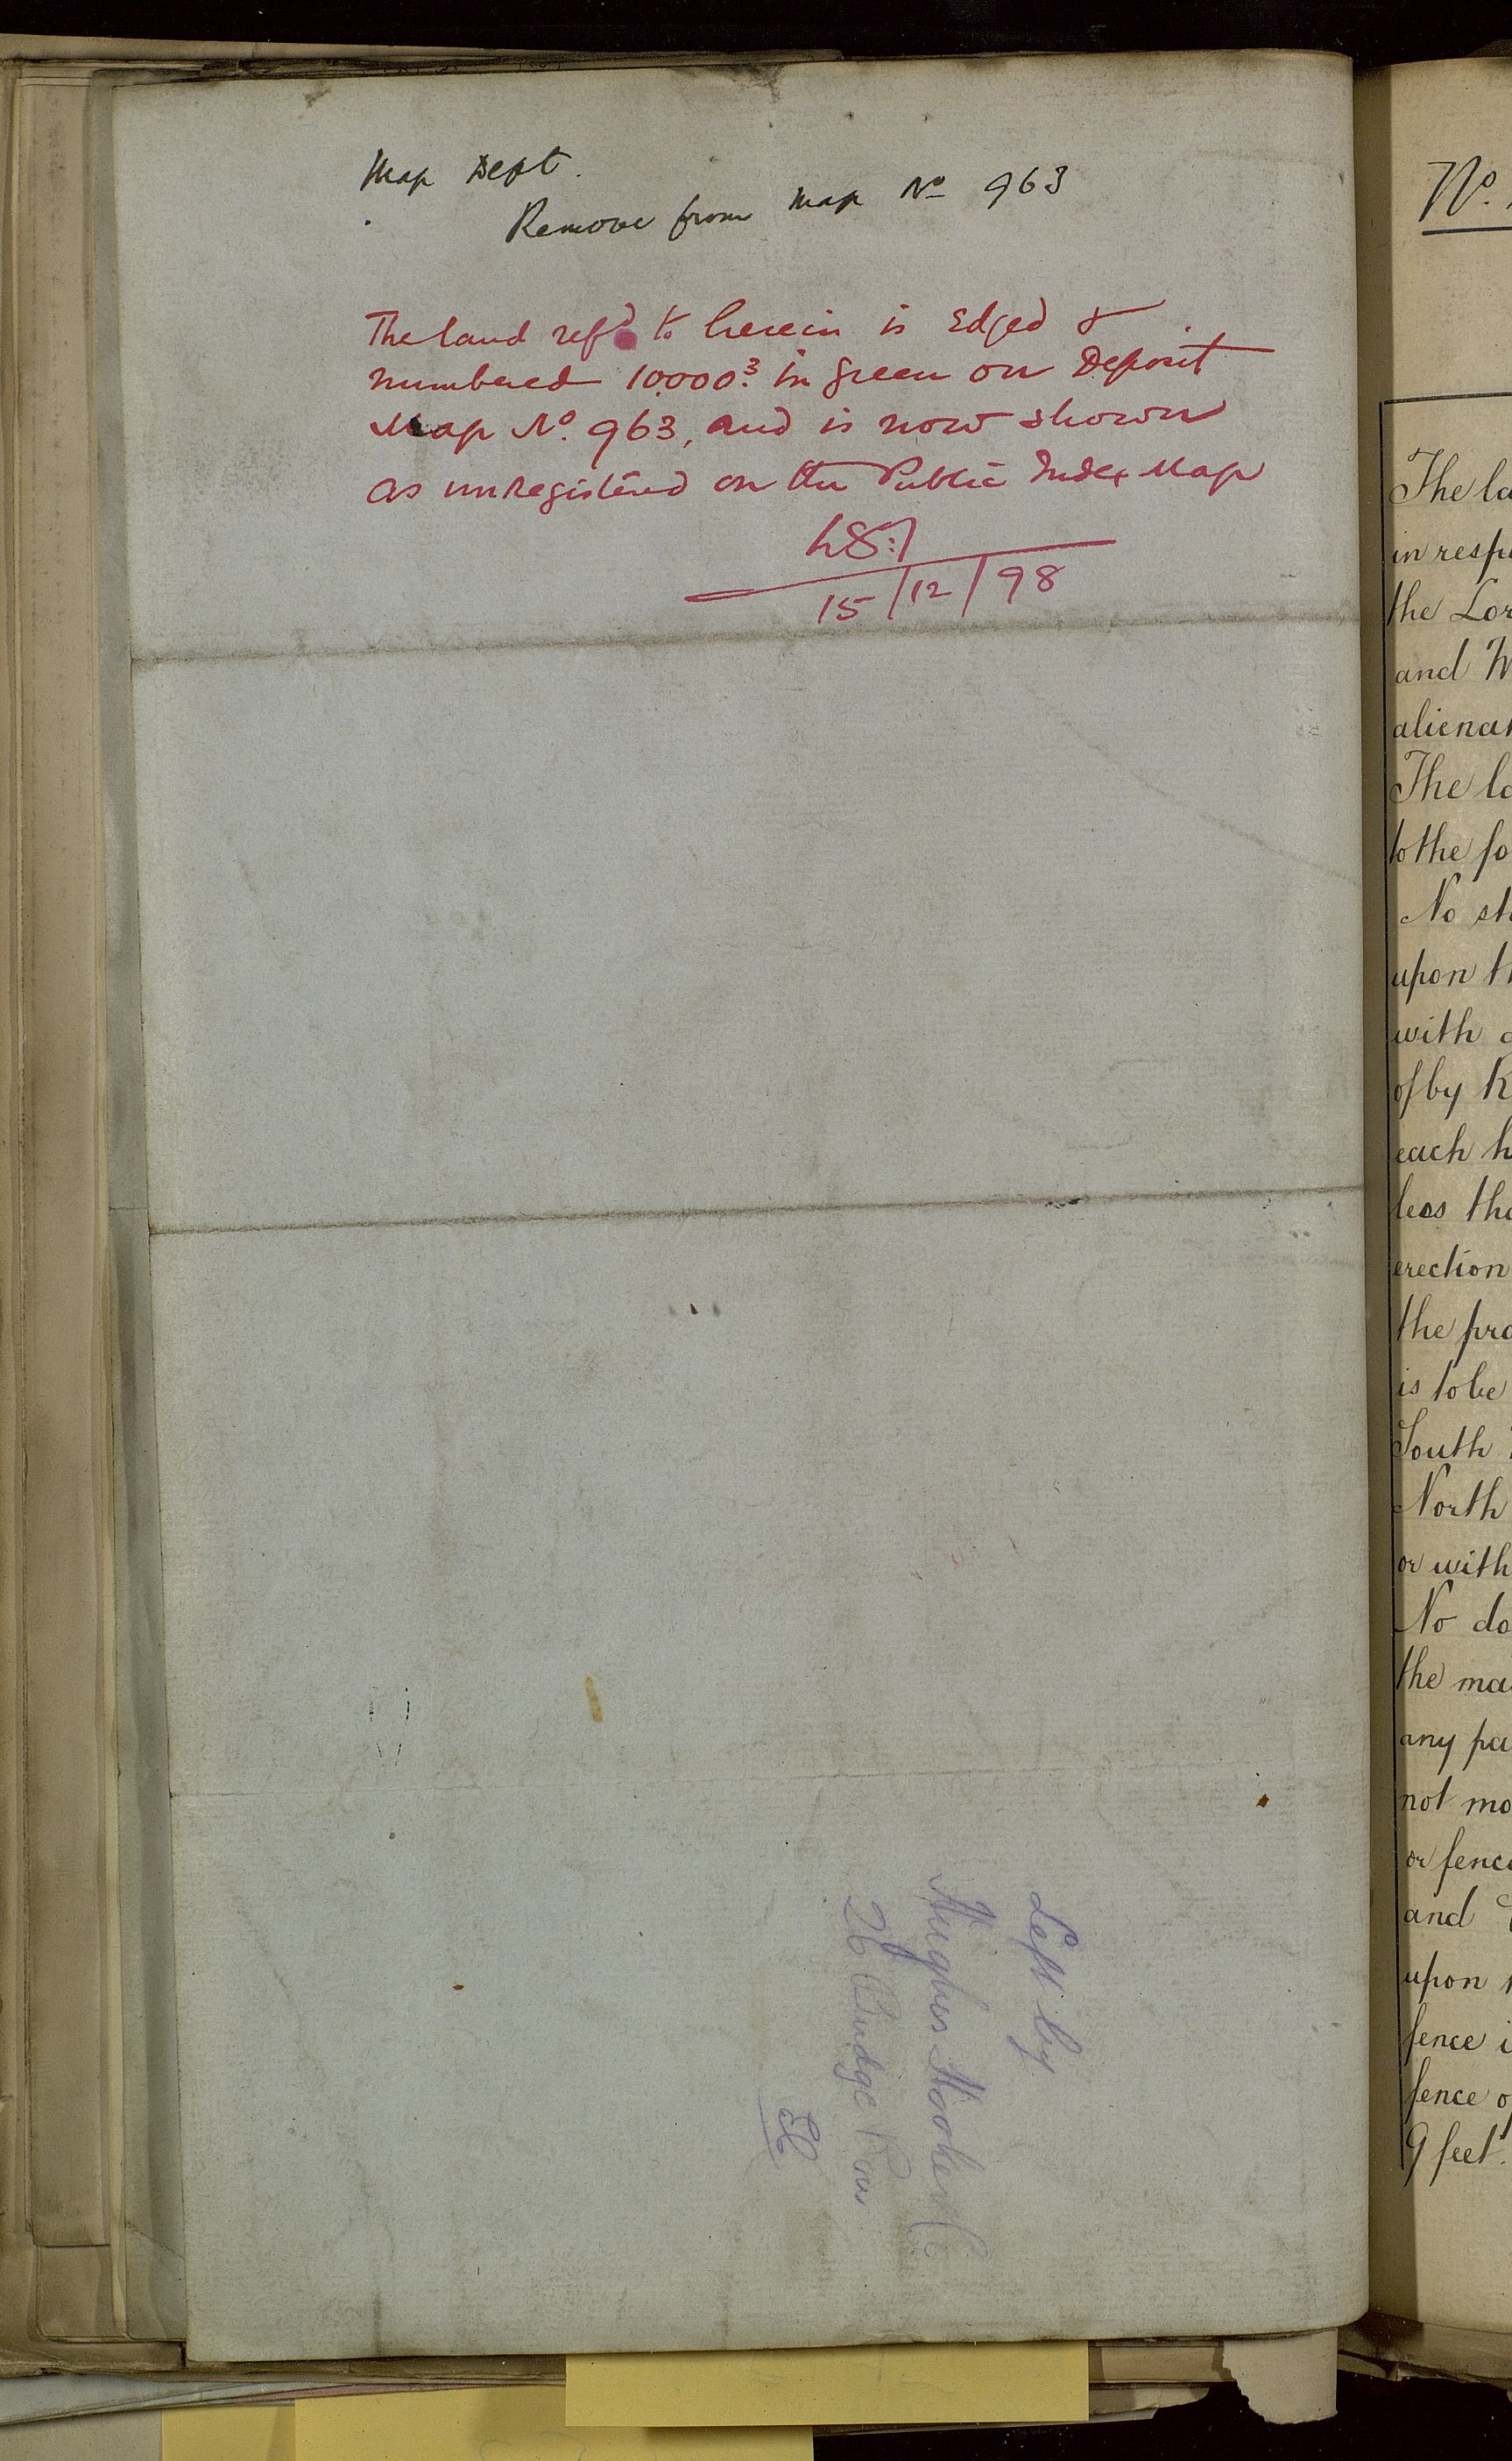 Map Dept.
Remove from Map No 963
The land refd to herein is Edged &
numbered 10,000.3 in green on Deposit
Map No. 963, and is now shown
as unregistered on the Public Index Map
15/12/98
Left by
Hughes Hooker
26 Budge Row
EC
No.
The la
in resp
the Lor
and W
alienat
The la
to the fo
No st
upon th
with
of by R
each h
less tha
erection
the pro
is to be
South
North
or with
No do
the ma
any pa
not mo
or fence
and
upon
fence i
fence o
9 feet.